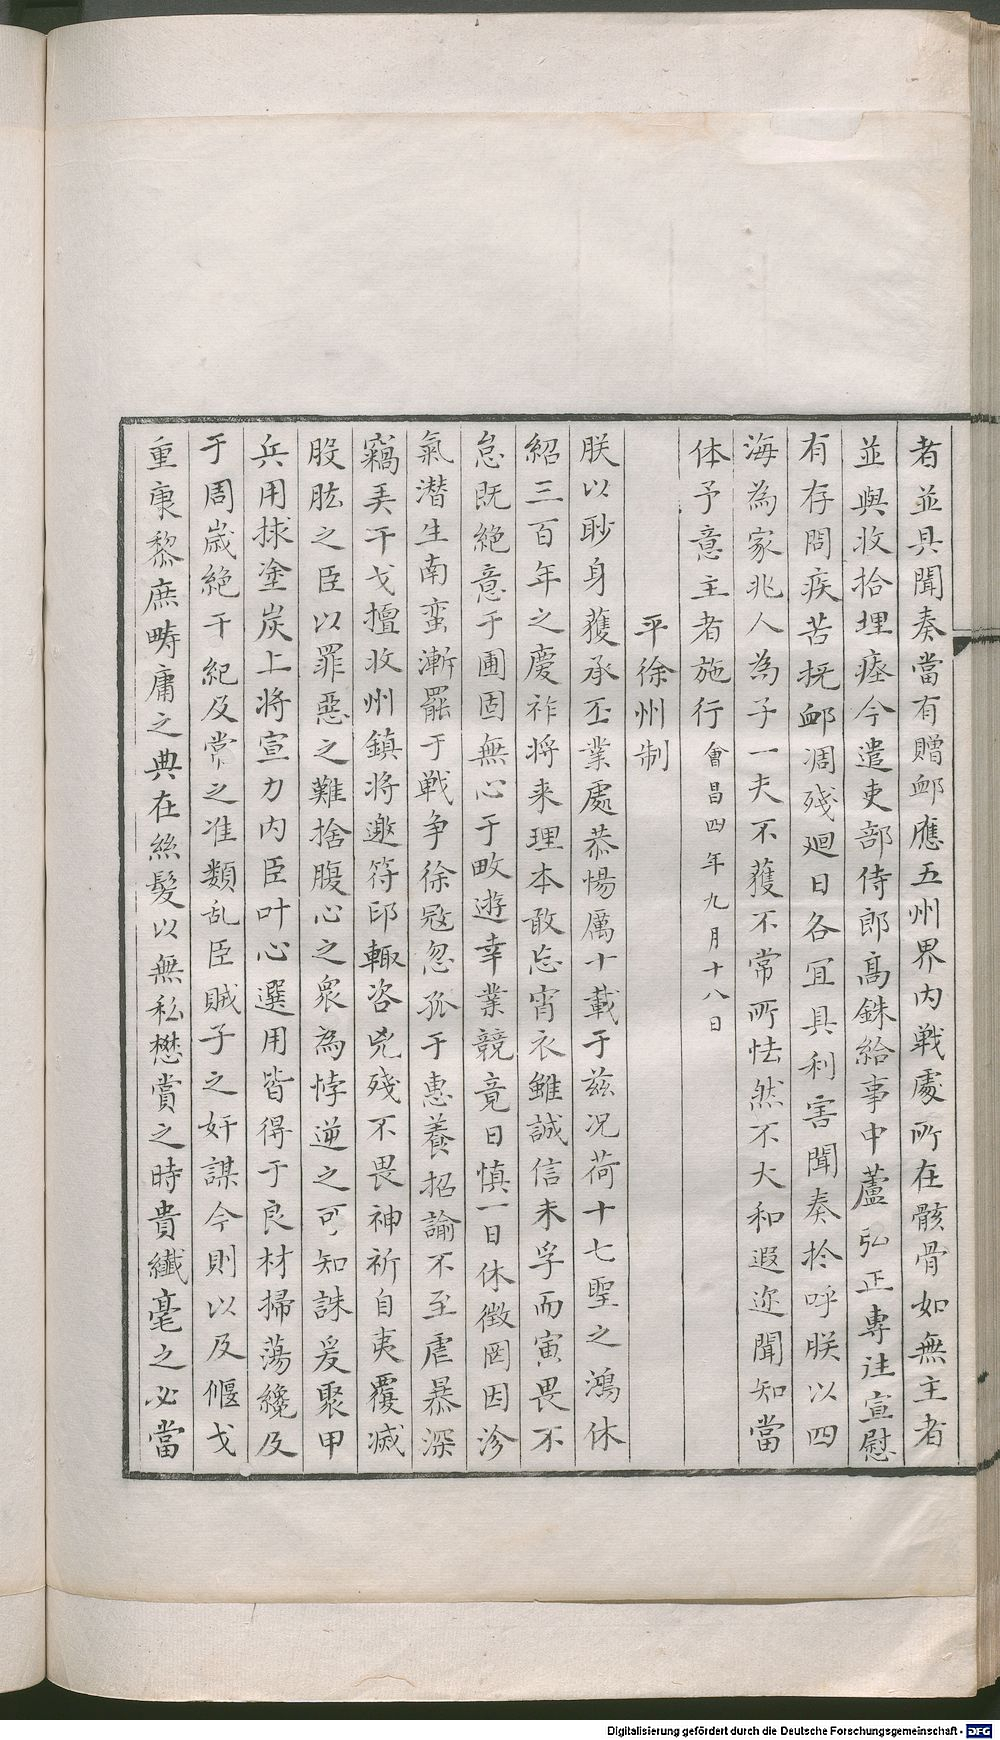 者並具聞奏當有贈衈應五州界内戦處所在骸骨如無主者
並與收拾埋瘞今遣吏部侍郎髙銖給事中蘆弘正專往宣慰
有存問疾苦抚衈凋殘廻日各冝具利害聞奏扵呼朕以四
海為家兆人為子一夫不獲不常所怯然不大和遐迩聞知當
体予意主者施行會昌四年九月十八日
平徐州制
朕以眇身獲承丕業處恭惕厲十載于兹况荷十七聖之鴻休
紹三百年之慶祚将来理本敢忘宵衣雖誠信未孚而寅畏不
怠既絶意于圃固無心于畋遊幸業競竟日慎一日休徴罔因沴
氣潜生南蛮漸罷于戦争徐冦忽孤于惠養招諭不至虐暴深
竊弄干戈擅收州鎮将邀符印輙咨兇殘不畏神祈自夷覆滅
股肱之臣以罪惡之難捨腹心之衆為悖逆之可知誅爰聚甲
兵用捄塗炭上将宣力内臣叶心選用皆得于良材掃蕩纔及
于周歳絶干紀及常之准類乱臣賊子之奸謀今則以及偃戈
重康黎庶疇庸之典在絲髮以無私懋賞之時貴纎毫之必當
Digitalisierung gefördert durch die Deutsche Forschungsgemeinschaft - DFG